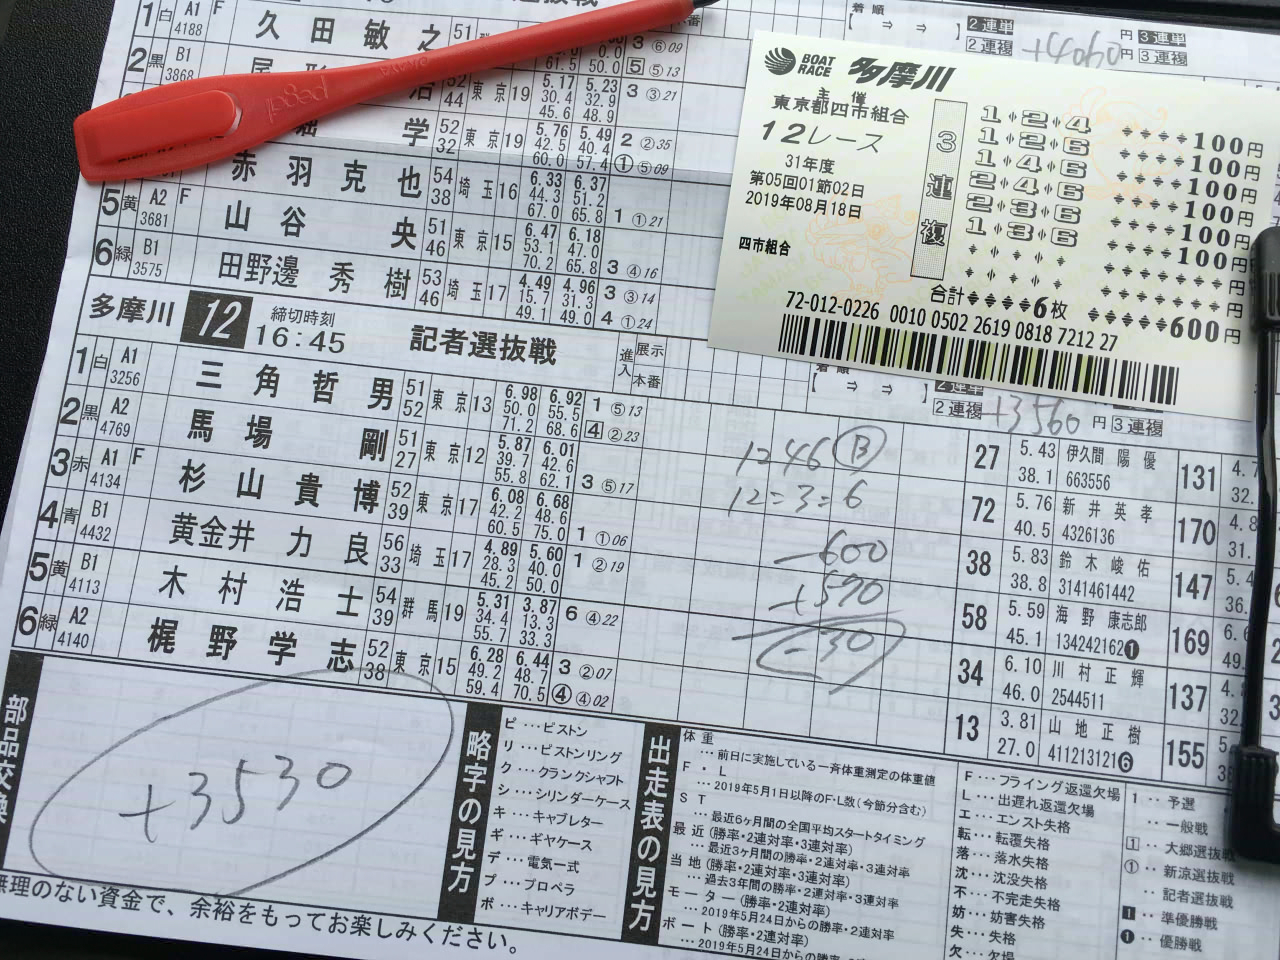 1 白 A1 4188 F 久田敏之 51
2 黒 B1 3868
52 44 東京19 5.17 30.4 45.6 5.23 32.9 48.9 3 ③21
学 52 32 東京19 5.76 42.5 60.0 5.49 40.4 57.4 2 ②35 ① ⑤09
赤羽克也 54 38 埼玉16 6.33 44.3 67.0 6.37 51.2 65.8 1 ①21
5 黄 A2 3681 F 山谷央 51 46 東京15 6.47 53.1 70.2 6.18 47.0 65.8 3 ④16
6 緑 B1 3575 田野邊秀樹 53 46 埼玉17 4.49 15.7 49.1 4.96 31.3 49.0 3 ③14 4 ①24
着順
[ ⇒ ⇒ ] 2連単 円 3連単
2連複 +4060 円 3連複
pegel
BOAT RACE 多摩川
主催
東京都四市組合
12レース
31年度
第05回01節02日
2019年08月18日
四市組合
3連複
1=2=4 100円
1=2=6 100円
1=4=6 100円
2=4=6 100円
2=3=6 100円
1=3=6 100円
合計 6枚 600円
72-012-0226 0010 0502 2619 0818 7212 27
多摩川 12 締切時刻 16:45 記者選抜戦 進入 展示 本番
2連単
2連複 +3560 円 3連複
1 白 A1 3256 三角哲男 51 52 東京13 6.98 50.0 71.2 6.92 55.5 68.6 1 ⑤13 4 ②23
2 黒 A2 4769 馬場剛 51 27 東京12 5.87 39.7 55.8 6.01 42.6 62.1 3 ⑤17
3 赤 A1 4134 F 杉山貴博 52 39 東京17 6.08 42.2 60.5 6.68 48.6 75.0 1 ①06
4 青 B1 4432 黄金井力良 56 33 埼玉17 4.89 28.3 45.2 5.60 40.0 50.0 1 ②19
5 黄 B1 4113 木村浩士 54 39 群馬19 5.31 34.4 55.7 3.87 13.3 33.3 6 ④22
6 緑 A2 4140 梶野学志 52 38 東京15 6.28 49.2 59.4 6.44 48.7 70.5 3 ②07 ④ ④02
1246 B
12=3=6
-600
+570
-30
27 5.43 38.1 伊久間陽優 663556 131
72 5.76 40.5 新井英孝 4326136 170
38 5.83 38.8 鈴木峻佑 3141461442 147
58 5.59 45.1 海野康志郎 134242162❶ 169
34 6.10 46.0 川村正輝 2544511 137
13 3.81 27.0 山地正樹 411213121❻ 155
部品交換
+3530
無理のない資金で、余裕をもってお楽しみください。
略字の見方
ピ…ピストン
リ…ピストンリング
ク…クランクシャフト
シ…シリンダーケース
キ…キャブレター
ギ…ギヤケース
デ…電気一式
プ…プロペラ
ボ…キャリアボデー
出走表の見方
体重
…前日に実施している一斉体重測定の体重値
F・L
…2019年5月1日以降のF・L数(今節分含む)
ST
…最近6ヶ月間の全国平均スタートタイミング
最近(勝率・2連対率・3連対率)
…最近3ヶ月間の勝率・2連対率・3連対率
当地(勝率・2連対率・3連対率)
…過去3年間の勝率・2連対率・3連対率
モーター(勝率・2連対率)
…2019年5月24日からの勝率・2連対率
ボート(勝率・2連対率)
…2019年5月24日からの勝率・2連対率
F…フライング返還欠場
L…出遅れ返還欠場
エ…エンスト失格
転…転覆失格
落…落水失格
沈…沈没失格
不…不完走失格
妨…妨害失格
失…失格
欠…欠場
1‥予選
‥一般戦
1‥大郷選抜戦
①‥新涼選抜戦
‥記者選抜戦
1‥準優勝戦
❶‥優勝戦